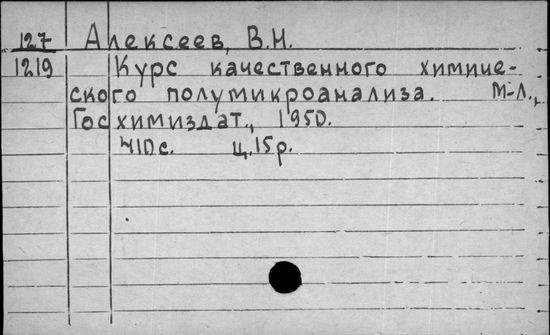 127 Алексеев, В.Н.
1219 Курс качественного химиче-
ского полумикроанализа. М-Л.,
Госхимиздат, 1950.
410с. ц.15р.